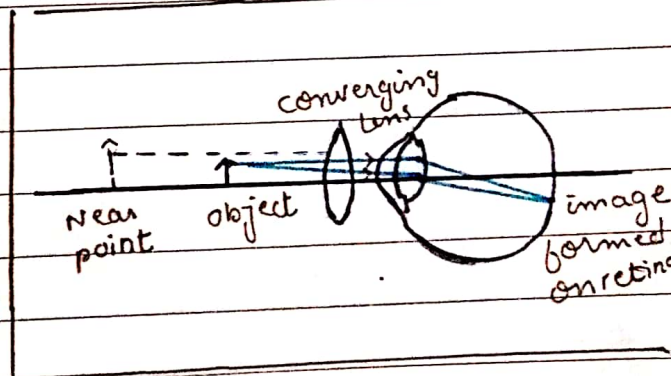 converging
lens
Near
point
object
image
formed
on retina